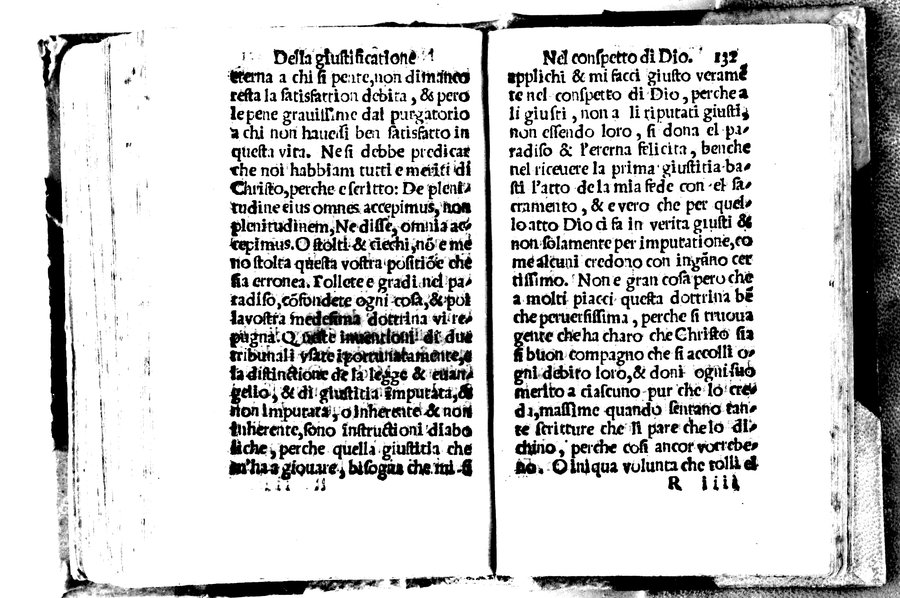 Della giustificatione
eterna a chi si pente, non dimanco
resta la satisfattion debita, & pero
le pene grauissime dal purgatorio
a chi non hauessi ben satisfatto in
questa vita. Ne si debbe predicar
che noi habbiam tutti e meriti di
Christo, perche e scritto: De pleni⸗
tudine eius omnes accepimus, non
plenitudinem, Ne disse, omnia ac⸗
cepimus. O stolti & ciechi, nõ e me
no stolta questa vostra positiõe che
sia erronea. Tollete e gradi nel pa⸗
radiso, cõfondete ogni cosa, & poi
la vostra medesima dottrina vi re⸗
pugna. O inuentioni di due
tribunali vsate iportunatamente, e
la distinctione de la legge & euan⸗
gelio, & di giustitia imputata, &
non imputata, o inherente & non
inherente, sono instructioni diabo
liche, perche quella giustitia che
m'ha a giouare, bisogna che mi si
Nel conspetto di Dio. 132
applichi & mi facci giusto veramẽ
te nel conspetto di Dio, perche a
li giusti, non a li riputati giusti,
non essendo loro, si dona el pa⸗
radiso & l'eterna felicita, benche
nel riceuere la prima giustitia ba⸗
sti l'atto de la mia fede con el sa⸗
cramento, & e vero che per quel⸗
lo atto Dio ci fa in verita giusti &
non solamente per imputatione, co
me alcuni credono con ingãno cer
tissimo. Non e gran cosa pero che
a molti piacci questa dottrina bẽ
che peruersissima, perche si truoua
gente che ha charo che Christo sia
si buon compagno che si accolli o⸗
gni debito loro, & doni ogni suo
merito a ciascuno pur che lo cre⸗
da, massime quando sentano tan⸗
te scritture che li pare che lo di⸗
chino, perche cosi ancor vorrebe⸗
no. O iniqua volunta che tolli el
R iiii